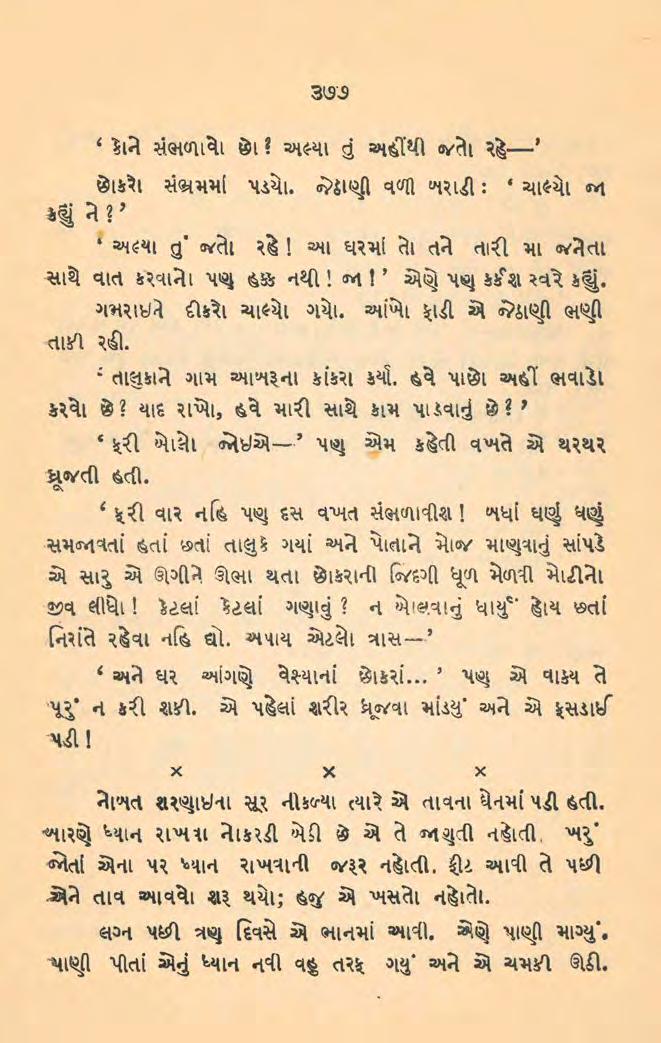 ૩૭૭
‘ કોને સંભળાવો છો ? અલ્યા તું અહીંથી જતો રહે—’
છોકરો સંભ્રમમાં પડયો. જેઠાણી વળી બરાડી : ‘ ચાલ્યો જા
કહ્યું ને ?’
‘ અલ્યા તું જતો રહે ! આ ઘરમાં તો તને તારી મા જનેતા
સાથે વાત કરવાનો પણ હક્ક નથી ! જા !’ એણે પણ કર્કશ સ્વરે કહ્યું.
ગમરાઇને દીકરો ચાલ્યો ગયો. આંખો ફાડી એ જેઠાણી ભણી
તાકી રહી.
‘ તાલુકાને ગામ આબરૂના કાંકરા કર્યા. હવે પાછો અહીં ભવાડો
કરવો છે ? યાદ રાખો, હવે મારી સાથે કામ પાડવાનું છે ?’
‘ ફરી બોલો જોઇએ—’ પણ એમ કહેતી વખતે એ થરથર
ધ્રૂજતી હતી.
‘ ફરી વાર નહિ પણ દસ વખત સંભળાવીશ ! બધાં ઘણું ઘણું
સમજાવતાં હતાં છતાં તાલુકે ગયાં અને પોતાને મોજ માણવાનું સાંપડે
એ સારુ એ ઊગીને ઊભા થતા છોકરાની જિંદગી ધૂળ મેળવી મોટીનો
જીવ લીધો ! કેટલાં કેટલાં ગણાવું ? ન બોલવાનું ધાર્યું હોય છતાં
નિરાંતે રહેવા નહિ દ્યો. અપાય એટલો ત્રાસ—’
‘ અને ઘર આંગણે વેશ્યાનાં છોકરાં... ’ પણ એ વાક્ય તે
પૂરું ન કરી શકી. એ પહેલાં શરીર ધ્રૂજવા માંડયું અને એ ફસડાઈ
પડી !
× × ×
નોબત શરણાઇના સૂર નીકળ્યા ત્યારે એ તાવના ઘેનમાં પડી હતી.
બારણે ધ્યાન રાખવા નોકરડી બેઠી છે એ તે જાણતી નહોતી. ખરું
જોતાં એના પર ધ્યાન રાખવાની જરૂર નહોતી. ફીટ આવી તે પછી
એને તાવ આવવો શરૂ થયો; હજુ એ ખસતો નહોતો.
લગ્ન પછી ત્રણ દિવસે એ ભાનમાં આવી. એણે પાણી માગ્યું.
પાણી પીતાં એનું ધ્યાન નવી વહુ તરફ ગયું અને એ ચમકી ઊઠી.